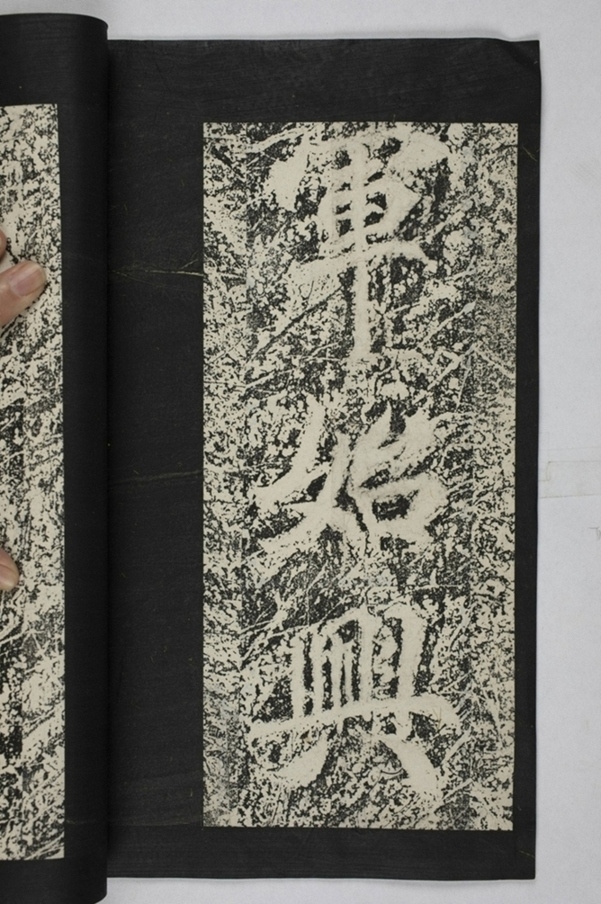 軍始興